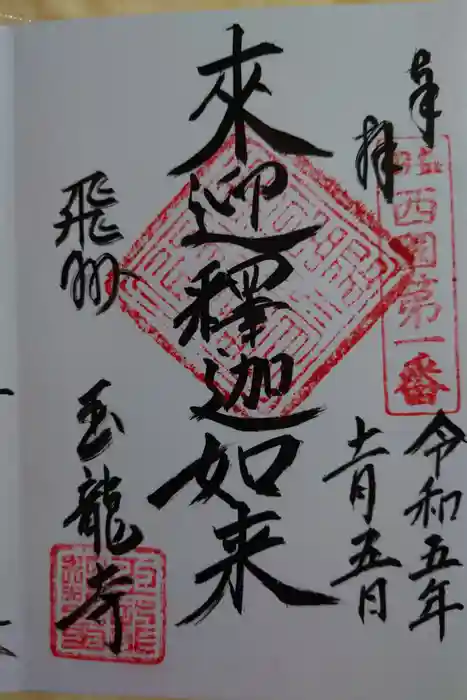 奉拝
益西国第一番
令和五年
十一月五日
來迎釋迦如来
飛州
玉龍寺